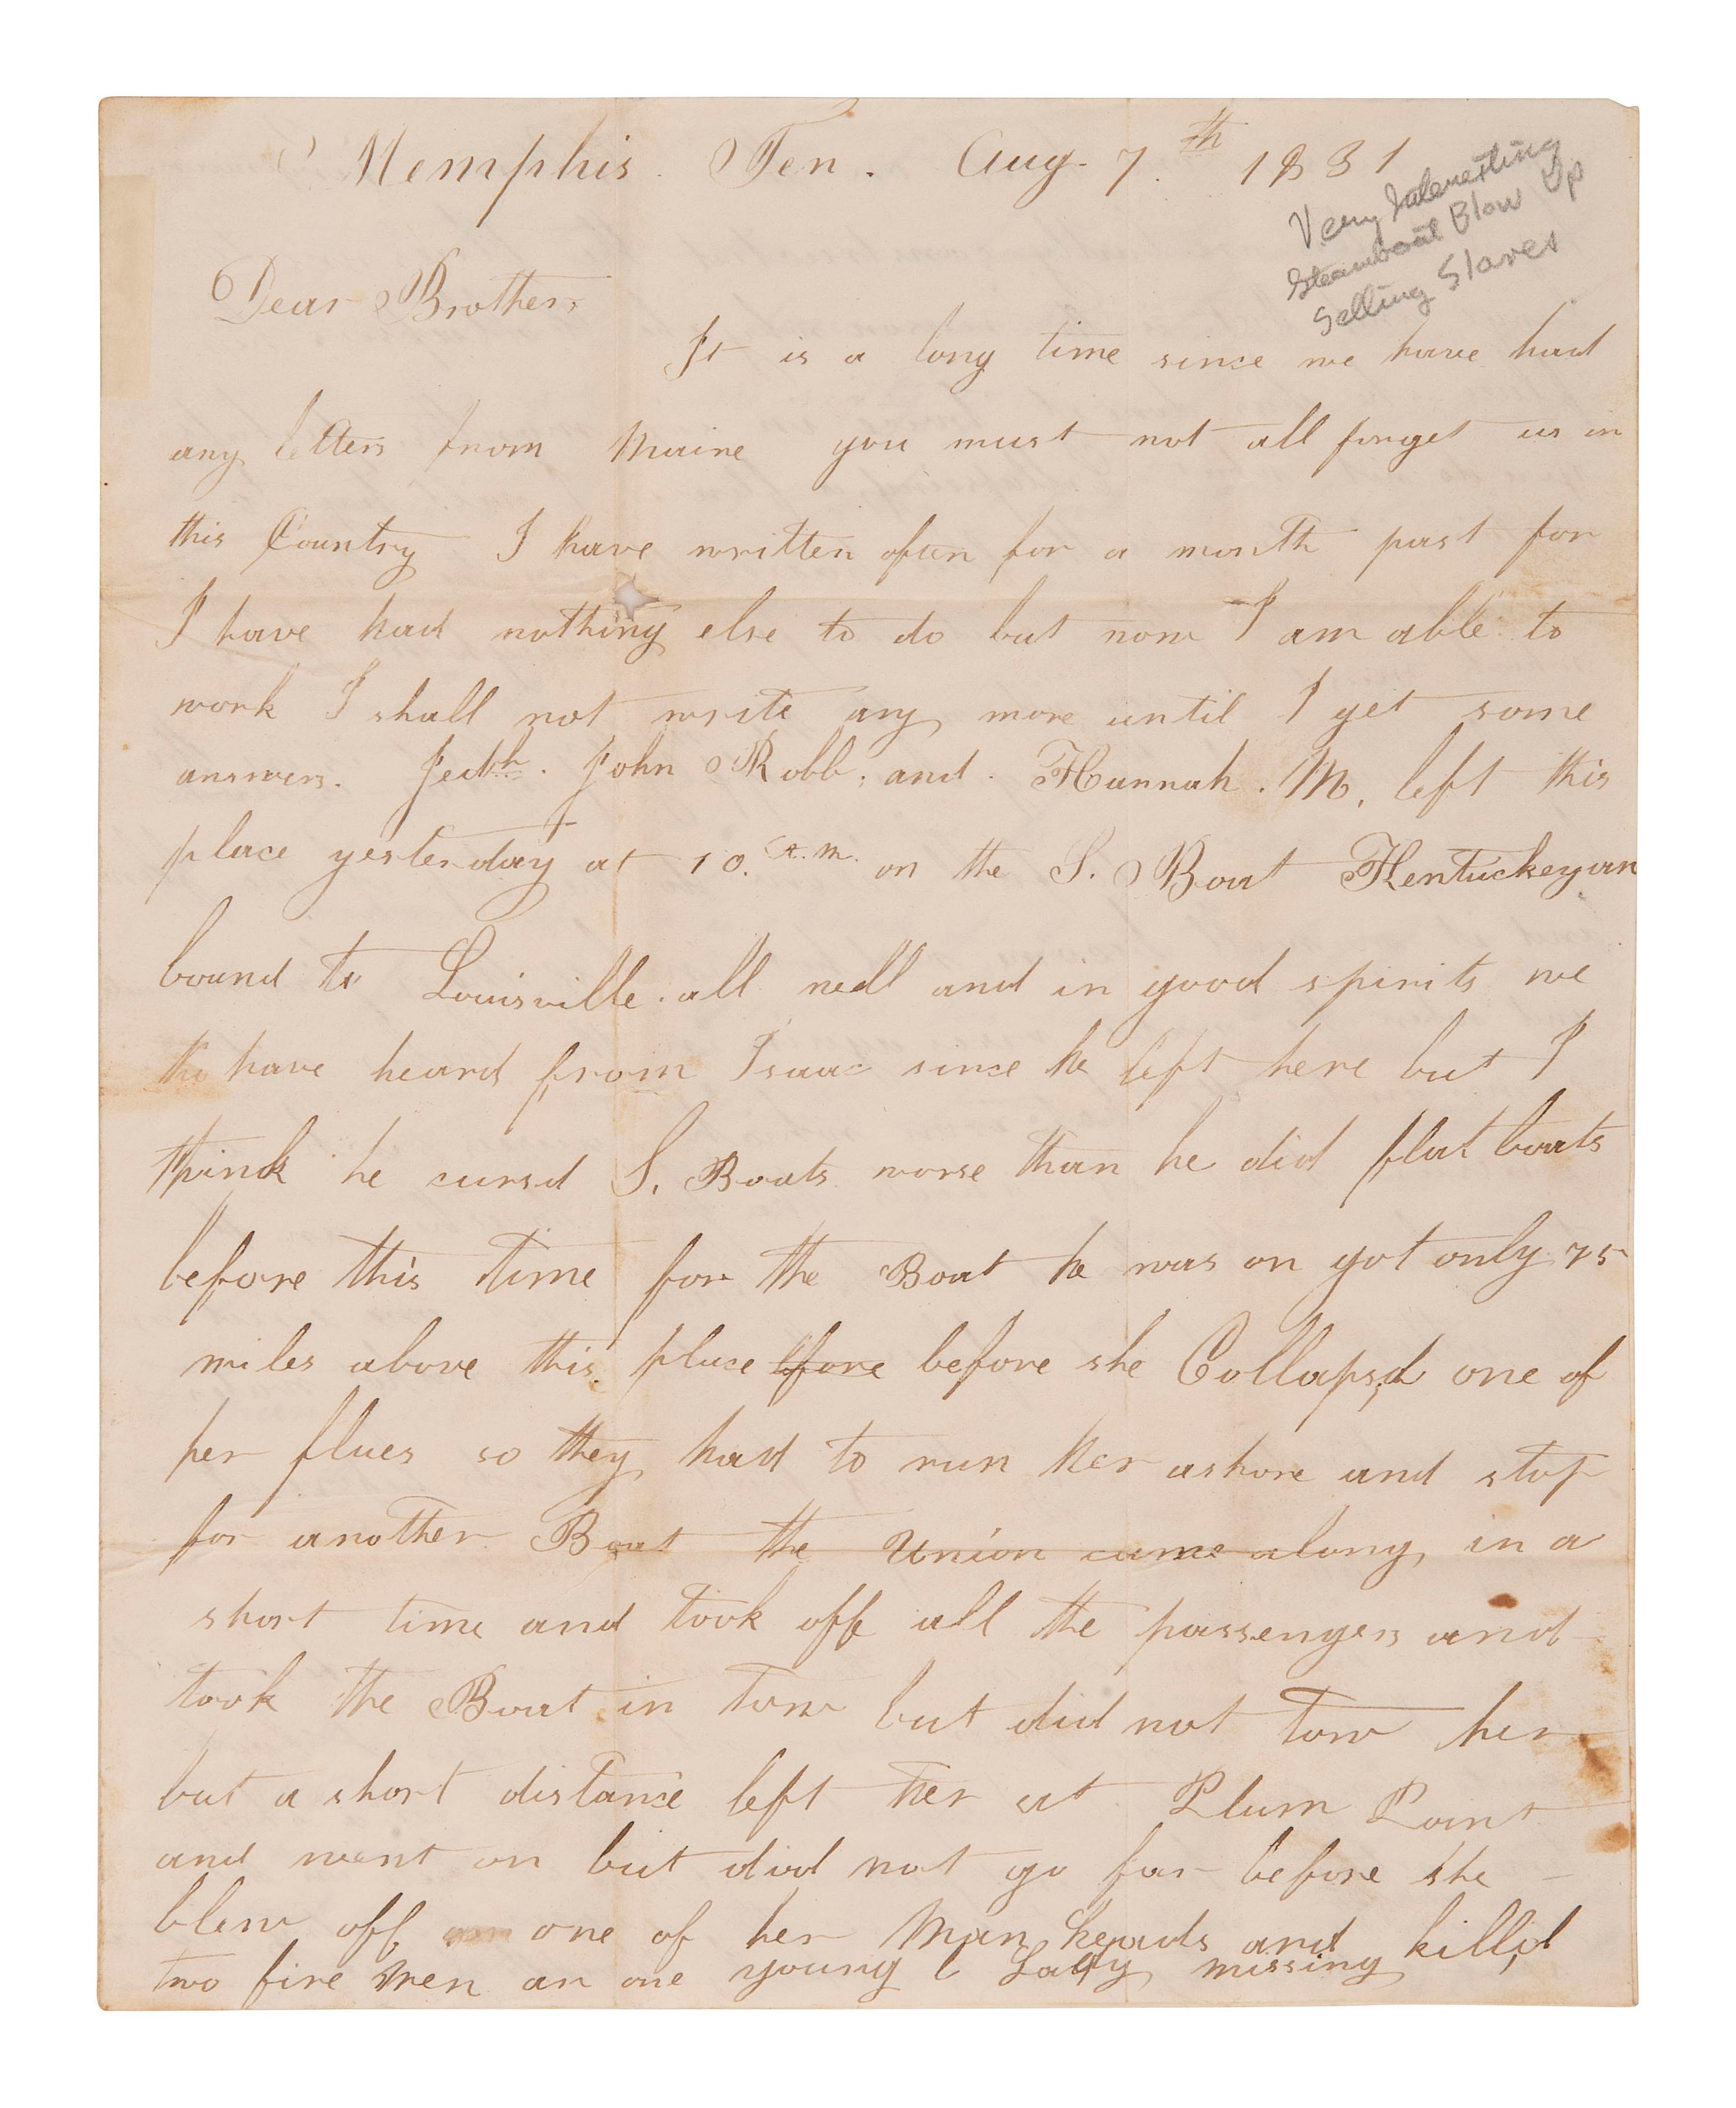 Memphis Ten. Aug. 7th 1831
Very Interesting
Steamboat Blow Up
Selling Slaves
Dear Brother
It is a long time since we have had
any letters from Maine you must not all forget us in
this Country I have written often for a month past for
I have had nothing else to do but now I am able to
work I shall not write any more until I get some
answers. Jedth. John Robb. and Hannah. M. left this
place yesterday at 10. A.M. on the S. Boat Kentuckeyan
bound to Louisville. all well and in good spirits we
have heard from Isaac since he left here but I
think he cursd S. Boats worse than he did flat boats
before this time for the Boat he was on got only 75
miles above this place before before she Collapsd one of
her flues so they had to run her ashore and stop
for another Boat the Union came along in a
short time and took off all the passengers and
took the Boat in tow but did not tow her
but a short distance left her at Plum Point
and went on but did not go far before she
blew off one of her Man heads and killd
two fire men an one young Lady missing